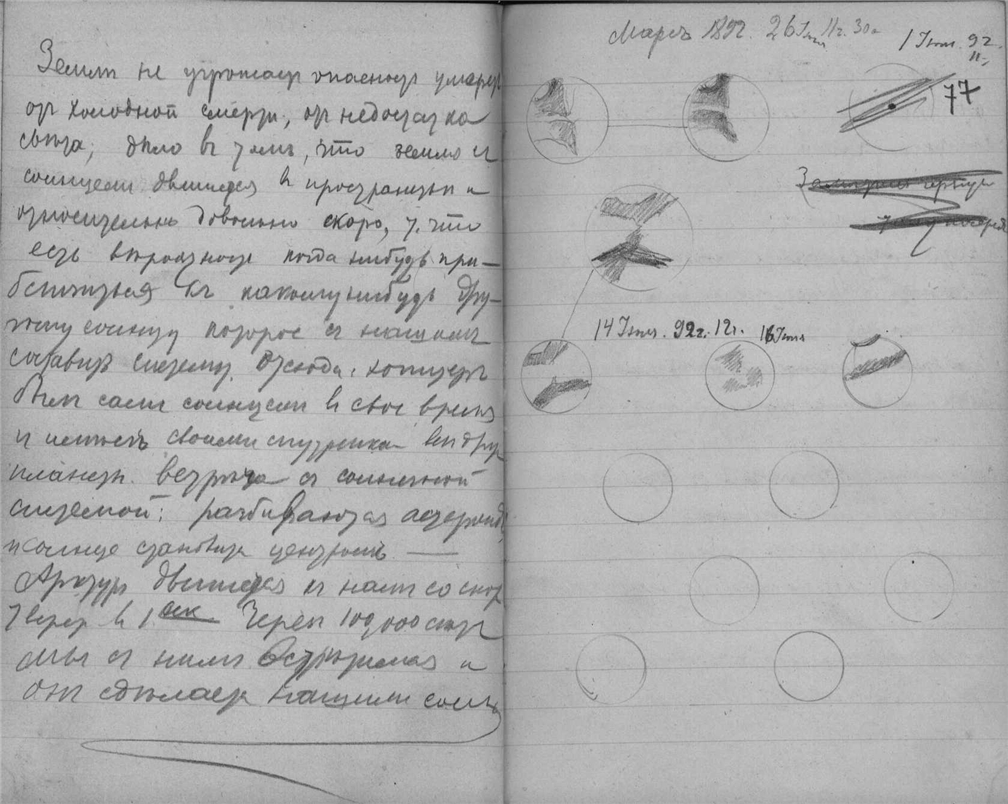 Земли не угрожает опасность умереть
от холодной смерти, от недостатка
света; дело в том, что земля и
солнцем движется в пространстве и
относительно довольно скоро, т. что
есть вероятность когда нибудь при-
близиться къ какому нибудь дру-
гому солнцу которое съ нашимъ
составитъ систему. Отсюда,
былъ самъ солнцемъ въ свое время
и имѣлъ своими спутниками
планеты. встрѣча съ солнечной
системой: разбиваются астероиды
и солнце становится центромъ —
Арктуръ движется къ намъ со скор
7 верст въ 1 сек Через 100,000 лѣтъ
мы съ нимъ встрѣтимся и
онъ сдѣлается нашимъ солнц
Марсъ 1892. 26 Іюля 11 ч. 30м
1 Іюля. 92.
11 ч
77
14 Іюля. 92г. 12г. 16 Іюля